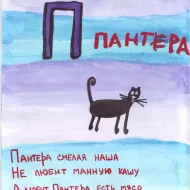 П
ПАНТЕРА
ПАНТЕРА СМЕЛАЯ НАША
НЕ ЛЮБИТ МАННУЮ КАШУ
А ЛЮБИТ ПАНТЕРА ЕСТЬ МЯСО